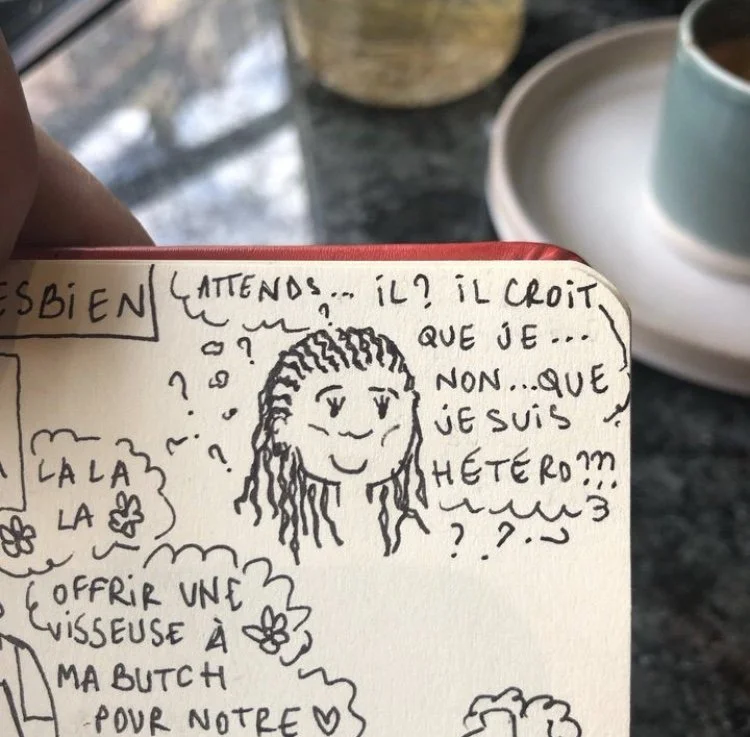 ESBIEN
ATTENDS... IL? IL CROIT
QUE JE...
NON...QUE
JE SUIS
HÉTÉRO???
LA LA
LA
OFFRIR UNE
VISSEUSE À
MA BUTCH
POUR NOTRE ♡